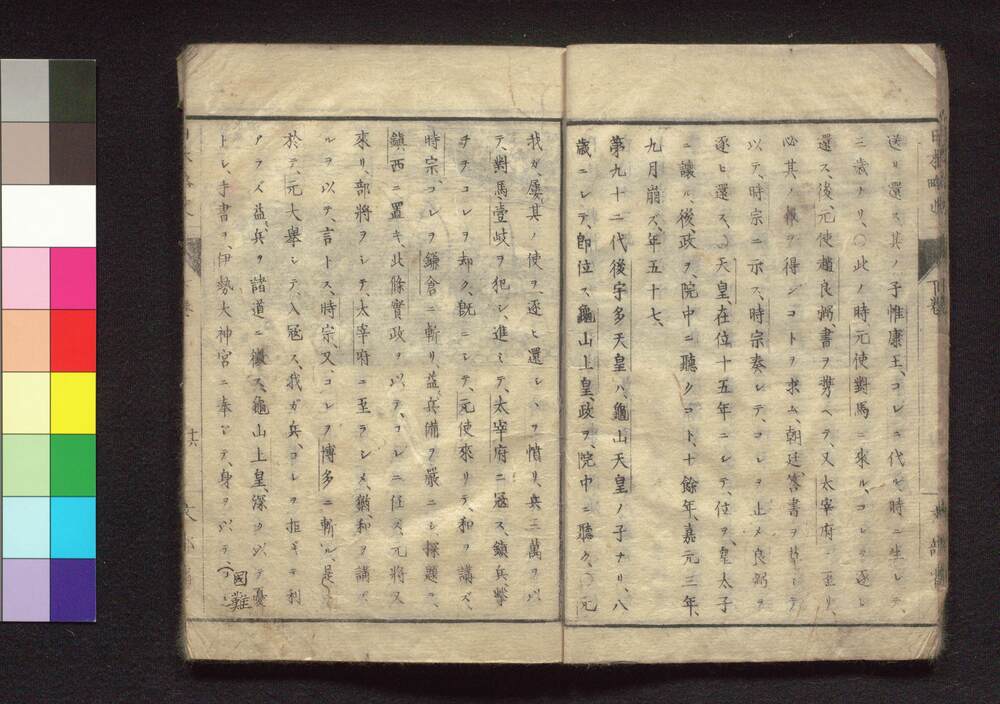 送リ還ス其ノ子惟康王、コレニ代ル時ニ生レテ、
三歳ナリ、〇此ノ時、元使對馬ニ來ル、コレヲ逐ヒ
還ス、後、元使趙良弼、書ヲ携ヘテ、又太宰府ニ至リ、
必其ノ報ヲ得ンコトヲ求ム、朝廷答書ヲ草シテ
以テ、時宗ニ示ス、時宗奏シテ、コレヲ止メ良弼ヲ
逐ヒ還ス、〇天皇、在位十五年ニシテ、位ヲ皇太子
ニ讓ル、後、政ヲ、院中ニ聽クコト、十餘年、嘉元三年、
九月崩ズ、年五十七、
第九十二代後宇多天皇ハ、龜山天皇ノ子ナリ、八
歳ニシテ、卽位ス、龜山上皇、政ヲ、院中ニ聽ク、〇元
我ガ、屢其ノ使ヲ、逐ヒ還シヽヲ憤リ、兵三萬ヲ以
テ、對馬、壹岐ヲ犯シ、進ミテ、太宰府ニ寇ス、鎭兵、擊
チテコレヲ却ク、旣ニシテ、元使來リテ、和ヲ講ズ、
時宗、コレヲ鎌倉ニ斬リ、益、兵備ヲ嚴ニシ探題ヲ、
鎭西ニ置キ、北條實政ヲ以テ、コレニ任ズ、元將又
來リ、部將ヲシテ、太宰府ニ至ラシメ、猶、和ヲ講ズ
ルヲ以テ、言トス、時宗、又、コレヲ博多ニ斬ル是ニ
於テ、元大擧シテ、入寇ス、我ガ兵、コレヲ拒ギテ利
アラズ益、兵ヲ諸道ニ徵ス、龜山上皇、深ク以テ憂
トシ、手書ヲ、伊勢大神宮ニ奉ジテ、身ヲ以テ、
國難
下卷